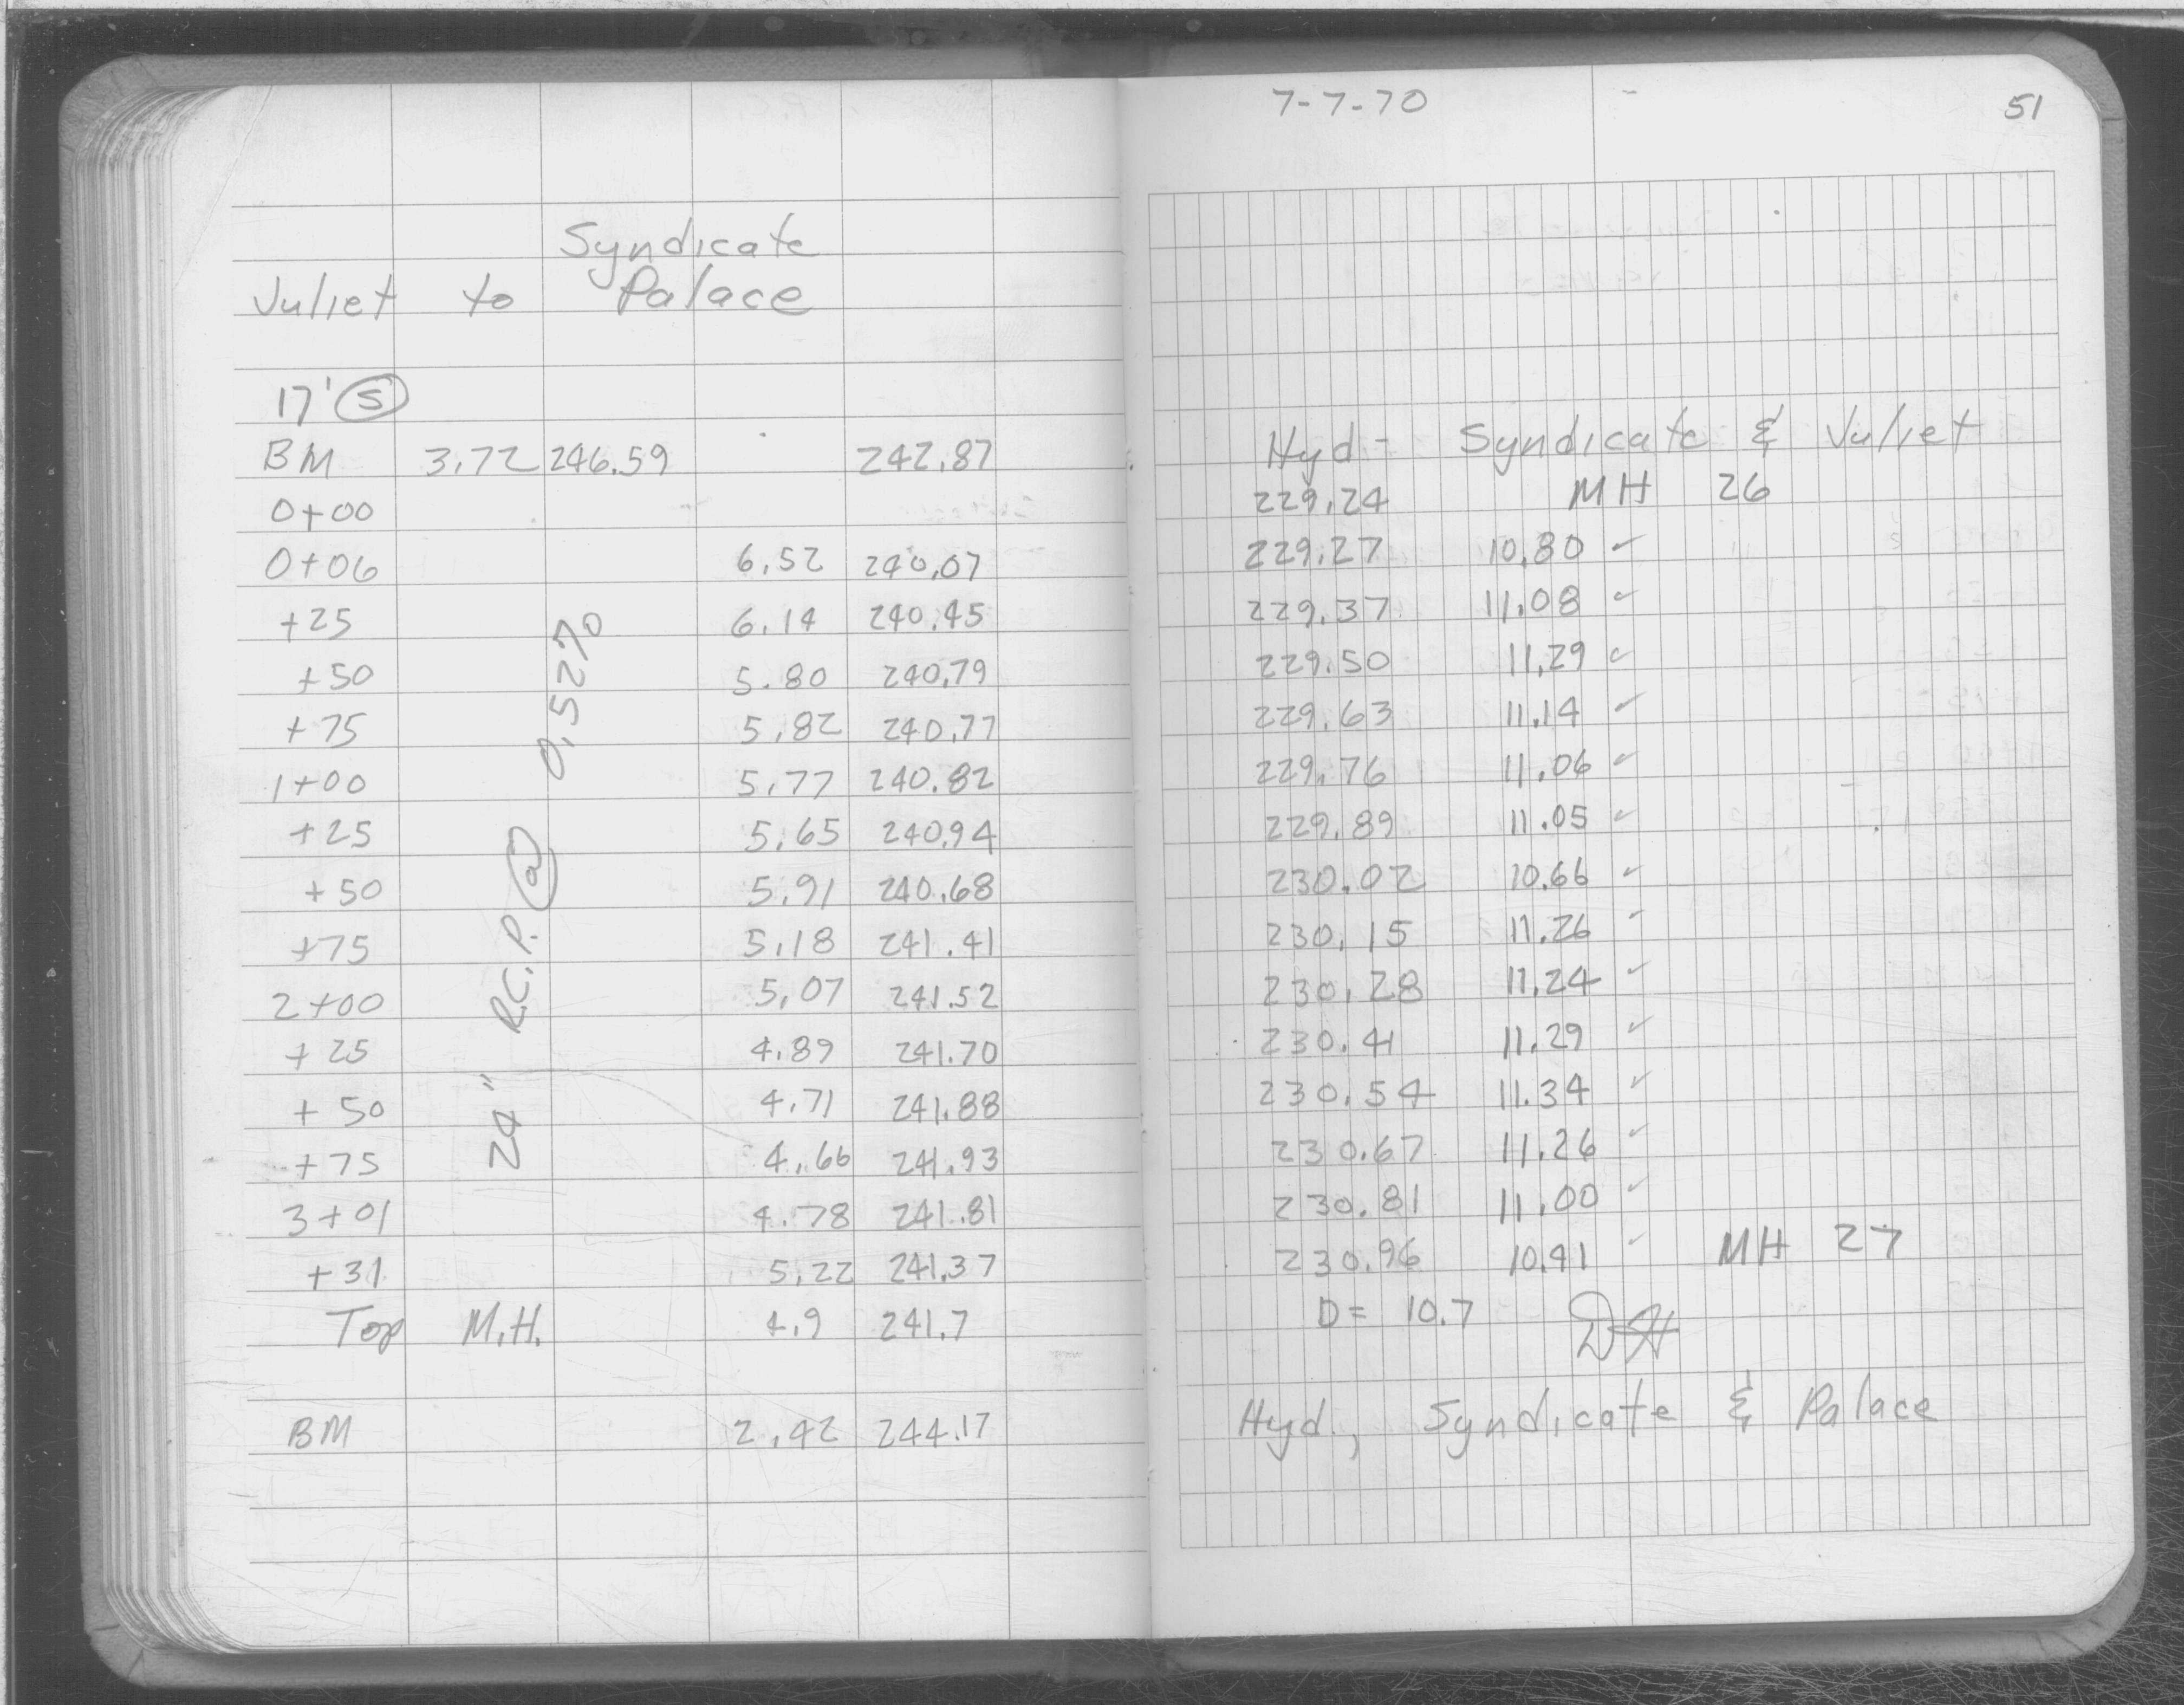 7-7-70 51
Syndicate
Juliet to Palace
17' S
BM 3.72 246.59 242.87 Hyd - Syndicate & Juliet
0+00 229.24 MH 26
0+06 6.52 240.07 229.27 10.80 ✓
+25 6.14 240.45 229.37 11.08 ✓
+50 5.80 240.79 229.50 11.29 ✓
+75 5.82 240.77 229.63 11.14 ✓
1+00 5.77 240.82 229.76 11.06 ✓
+25 5.65 240.94 229.89 11.05 ✓
+50 5.91 240.68 230.02 10.66 ✓
+75 5.18 241.41 230.15 11.26 ✓
2+00 5.07 241.52 230.28 11.24 ✓
+25 4.89 241.70 230.41 11.29 ✓
+50 4.71 241.88 230.54 11.34 ✓
+75 4.66 241.93 230.67 11.26 ✓
3+01 4.78 241.81 230.81 11.00 ✓
+31 5.22 241.37 230.96 10.41 ✓ MH 27
Top M.H. 4.9 241.7 D = 10.7 DH
BM 2.42 244.17 Hyd., Syndicate & Palace
24" R.C.P. @ 0.52%